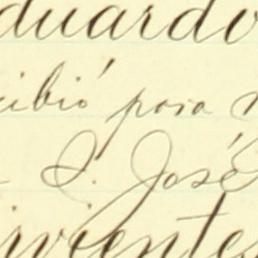 duardo
cibió para
S. José
vientes